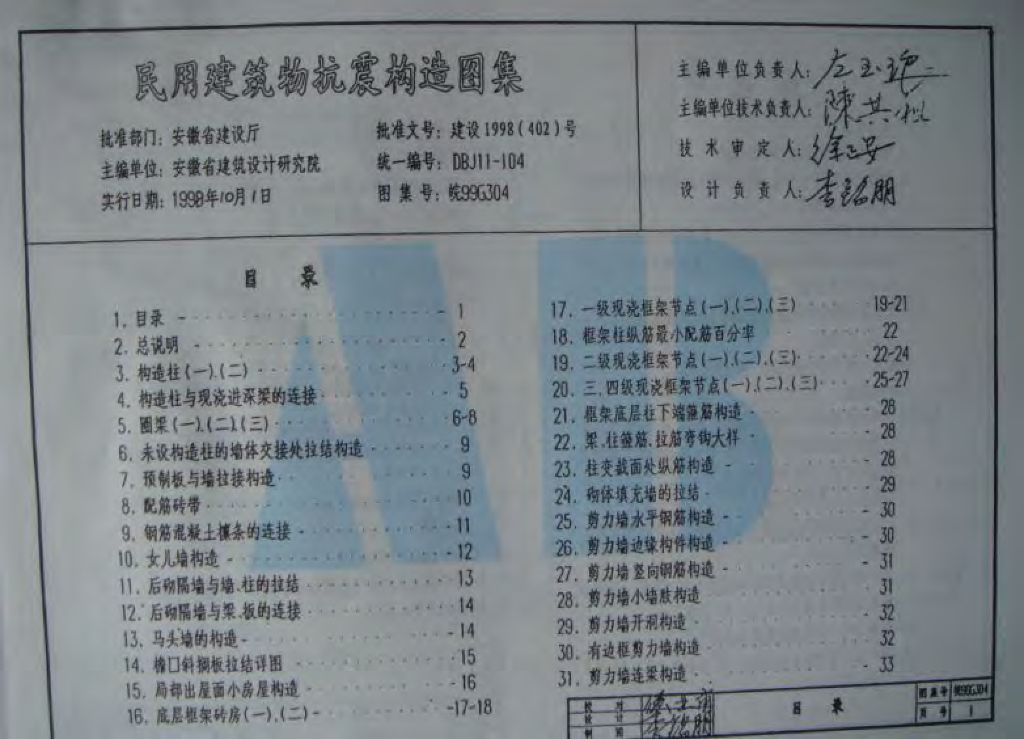 民用建筑物抗震构造图集
批准部门：安徽省建设厅
主编单位：安徽省建筑设计研究院
实行日期：1998年10月1日
批准文号：建设1998(402)号
统一编号：DBJ11-104
图集号：皖99G304
主编单位负责人：
主编单位技术负责人：
技术审定人：
设计负责人：李铭朋
目录
1. 目录 1
2. 总说明 2
3. 构造柱(一)、(二) 3-4
4. 构造柱与现浇进深梁的连接 5
5. 圈梁(一)、(二)、(三) 6-8
6. 未设构造柱的墙体交接处拉结构造 9
7. 预制板与墙拉接构造 9
8. 配筋砖带 10
9. 钢筋混凝土檩条的连接 11
10. 女儿墙构造 12
11. 后砌隔墙与墙、柱的拉结 13
12. 后砌隔墙与梁、板的连接 14
13. 马头墙的构造 14
14. 檐口斜搁板拉结详图 15
15. 局部出屋面小房屋构造 16
16. 底层框架砖房(一)、(二) 17-18
17. 一级现浇框架节点(一)、(二)、(三) 19-21
18. 框架柱纵筋最小配筋百分率 22
19. 二级现浇框架节点(一)、(二)、(三) 22-24
20. 三、四级现浇框架节点(一)、(二)、(三) 25-27
21. 框架底层柱下端箍筋构造 28
22. 梁、柱箍筋、拉筋弯钩大样 28
23. 柱变截面处纵筋构造 28
24. 砌体填充墙的拉结 29
25. 剪力墙水平钢筋构造 30
26. 剪力墙边缘构件构造 30
27. 剪力墙竖向钢筋构造 31
28. 剪力墙小墙肢构造 31
29. 剪力墙开洞构造 32
30. 有边框剪力墙构造 32
31. 剪力墙连梁构造 33
校对
设计
制图
目录
图集号 皖99G304
页号 1